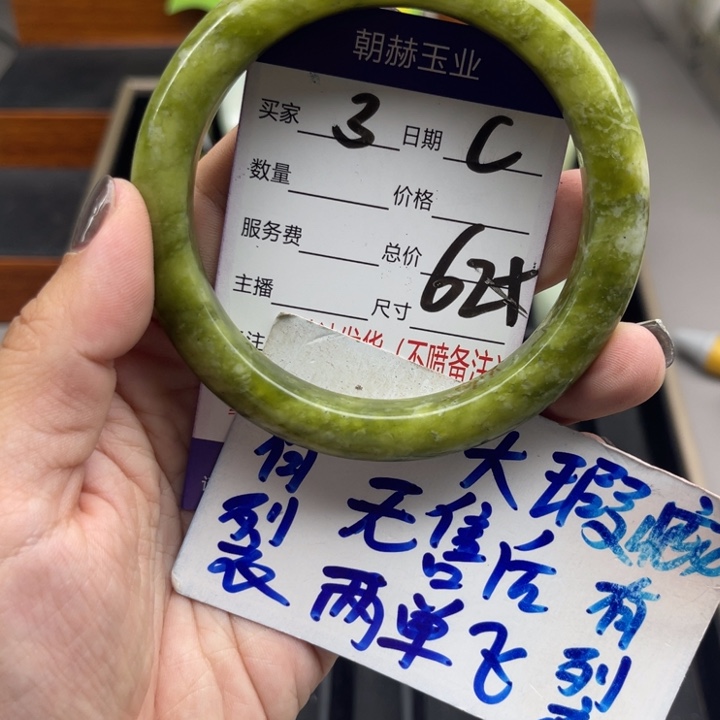 朝赫玉业
买家 3 日期 C
数量 价格
服务费 总价
主播 尺寸 62
注
发货（不喷备注
有裂 无售后 大瑕疵
两单飞 有裂